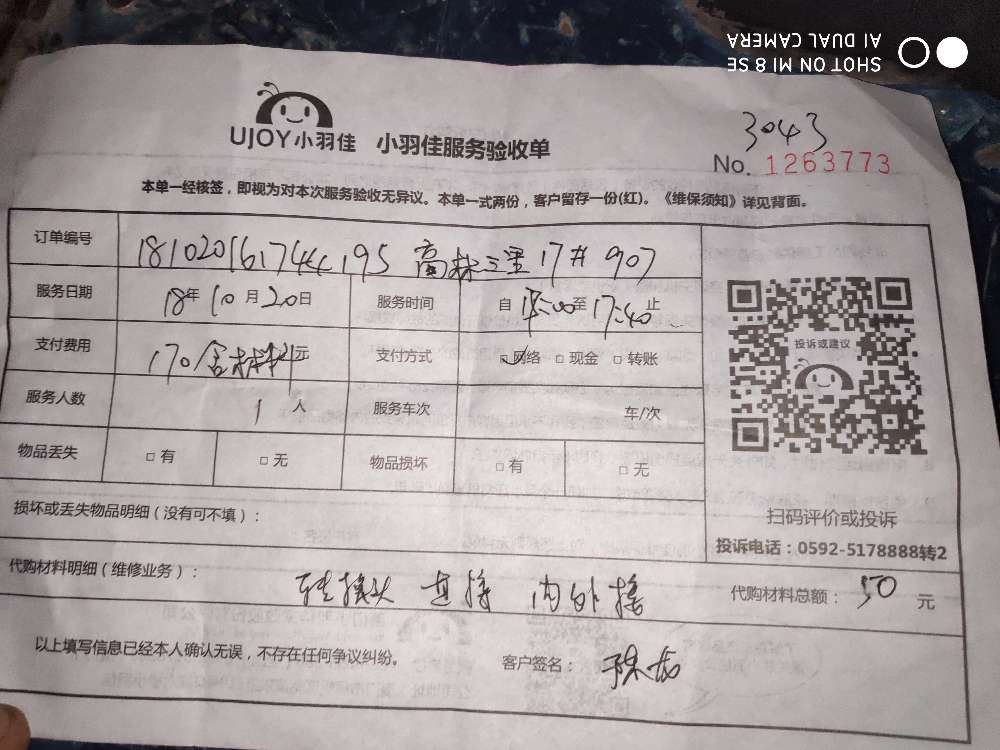 SHOT ON MI 8 SE
AI DUAL CAMERA
UJOY小羽佳 小羽佳服务验收单
3043
No. 1263773
本单一经核签，即视为对本次服务验收无异议。本单一式两份，客户留存一份(红)。《维保须知》详见背面。
订单编号 181020161744195 高林三里 17# 907
服务日期 18年10月20日 服务时间 自 :00至17:40止
支付费用 170含材料元 支付方式 ☑网络 □现金 □转账
服务人数 1人 服务车次 车/次
物品丢失 □有 □无 物品损坏 □有 □无
投诉或建议
扫码评价或投诉
投诉电话：0592-5178888转2
损坏或丢失物品明细（没有可不填）：
代购材料明细（维修业务）： 转接头 直接 内外接 代购材料总额：50元
以上填写信息已经本人确认无误，不存在任何争议纠纷。 客户签名：